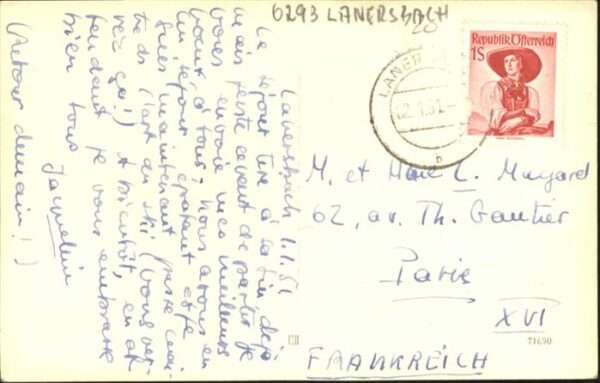 6293 LANERSBACH
20
Republik Österreich
1S
LANER
02.1.51
b
M. et Mme L. Mugard
62, av. Th. Gautier
Paris
XVI
FRANKREICH
71690
Lanersbach 1.1.51
Le séjour tire à sa fin déjà
mais juste avant de partir je
vous envoie mes meilleurs
vœux, à tous. Nous avons eu
un séjour épatant et je
suis maintenant passée maî-
tre ds l'art du ski (vous ver-
rez ça!) A bientôt, en at-
tendant je vous embrasse
bien tous
Jacqueline
(Retour demain!)